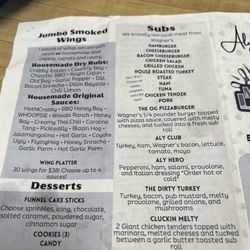 Jumbo Smoked
Wings
1 pound of wings served with
choice of housemade blue
cheese, carrots and celery
Housemade Dry Rubs:
Crabby Island - Country Boy -
Chipotle BBQ - Ragin Cajun -
Old Bay - Garlic Pepper - Dill
Bacon Sriracha - Dillin Bayside -
Chili Limon
Housemade Original
Sauces:
HotNCrabby - BBQ Honey Boy -
WHOOPSIE - Wassabi Ranch - Honey
Boy - Creamy Thai Chili - Carolina
Tang - PickledBly - Blazin Hog -
Aldamangodrina - Hot Garlic - Coyote
Ugly - Angry Thai - Honey Sriracha -
Garlic Parm - Hot Garlic Parm
WING PLATTER
30 wings for $38! Choose up to 3
sauces.
Desserts
FUNNEL CAKE STICKS
Choose sprinkles, icing, chocolate,
salted caramel, powdered sugar,
cinnamon sugar
COOKIES (3)
CANDY
Subs
We proudly use local meat from
Wagner's
HAMBURGER
CHEESEBURGER
BACON CHEESEBURGER
CHICKEN SALAD
GRILLED CHICKEN
HOUSE ROASTED TURKEY
STEAK
HAM
TUNA
CHICKEN TENDER
PORK
THE OG PIZZABURGER
Wagner's 1/4 pounder burger topped
with pizza sauce, covered with melty
cheese, and tucked into a fresh sub
roll
ALY CLUB
Turkey, ham, Wagner's bacon, lettuce,
tomato, mayo
ALY HERO
Pepperoni, ham, salami, provolone,
and Italian dressing *Order hot or
cold*
THE DIRTY TURKEY
Turkey, bacon, pub mustard, melty
provolone, grilled onions, and
mushrooms
CLUCKIN MELTY
2 Giant chicken tenders topped with
marinara, melted cheeses and tucked
between a garlic butter toasted sub
roll